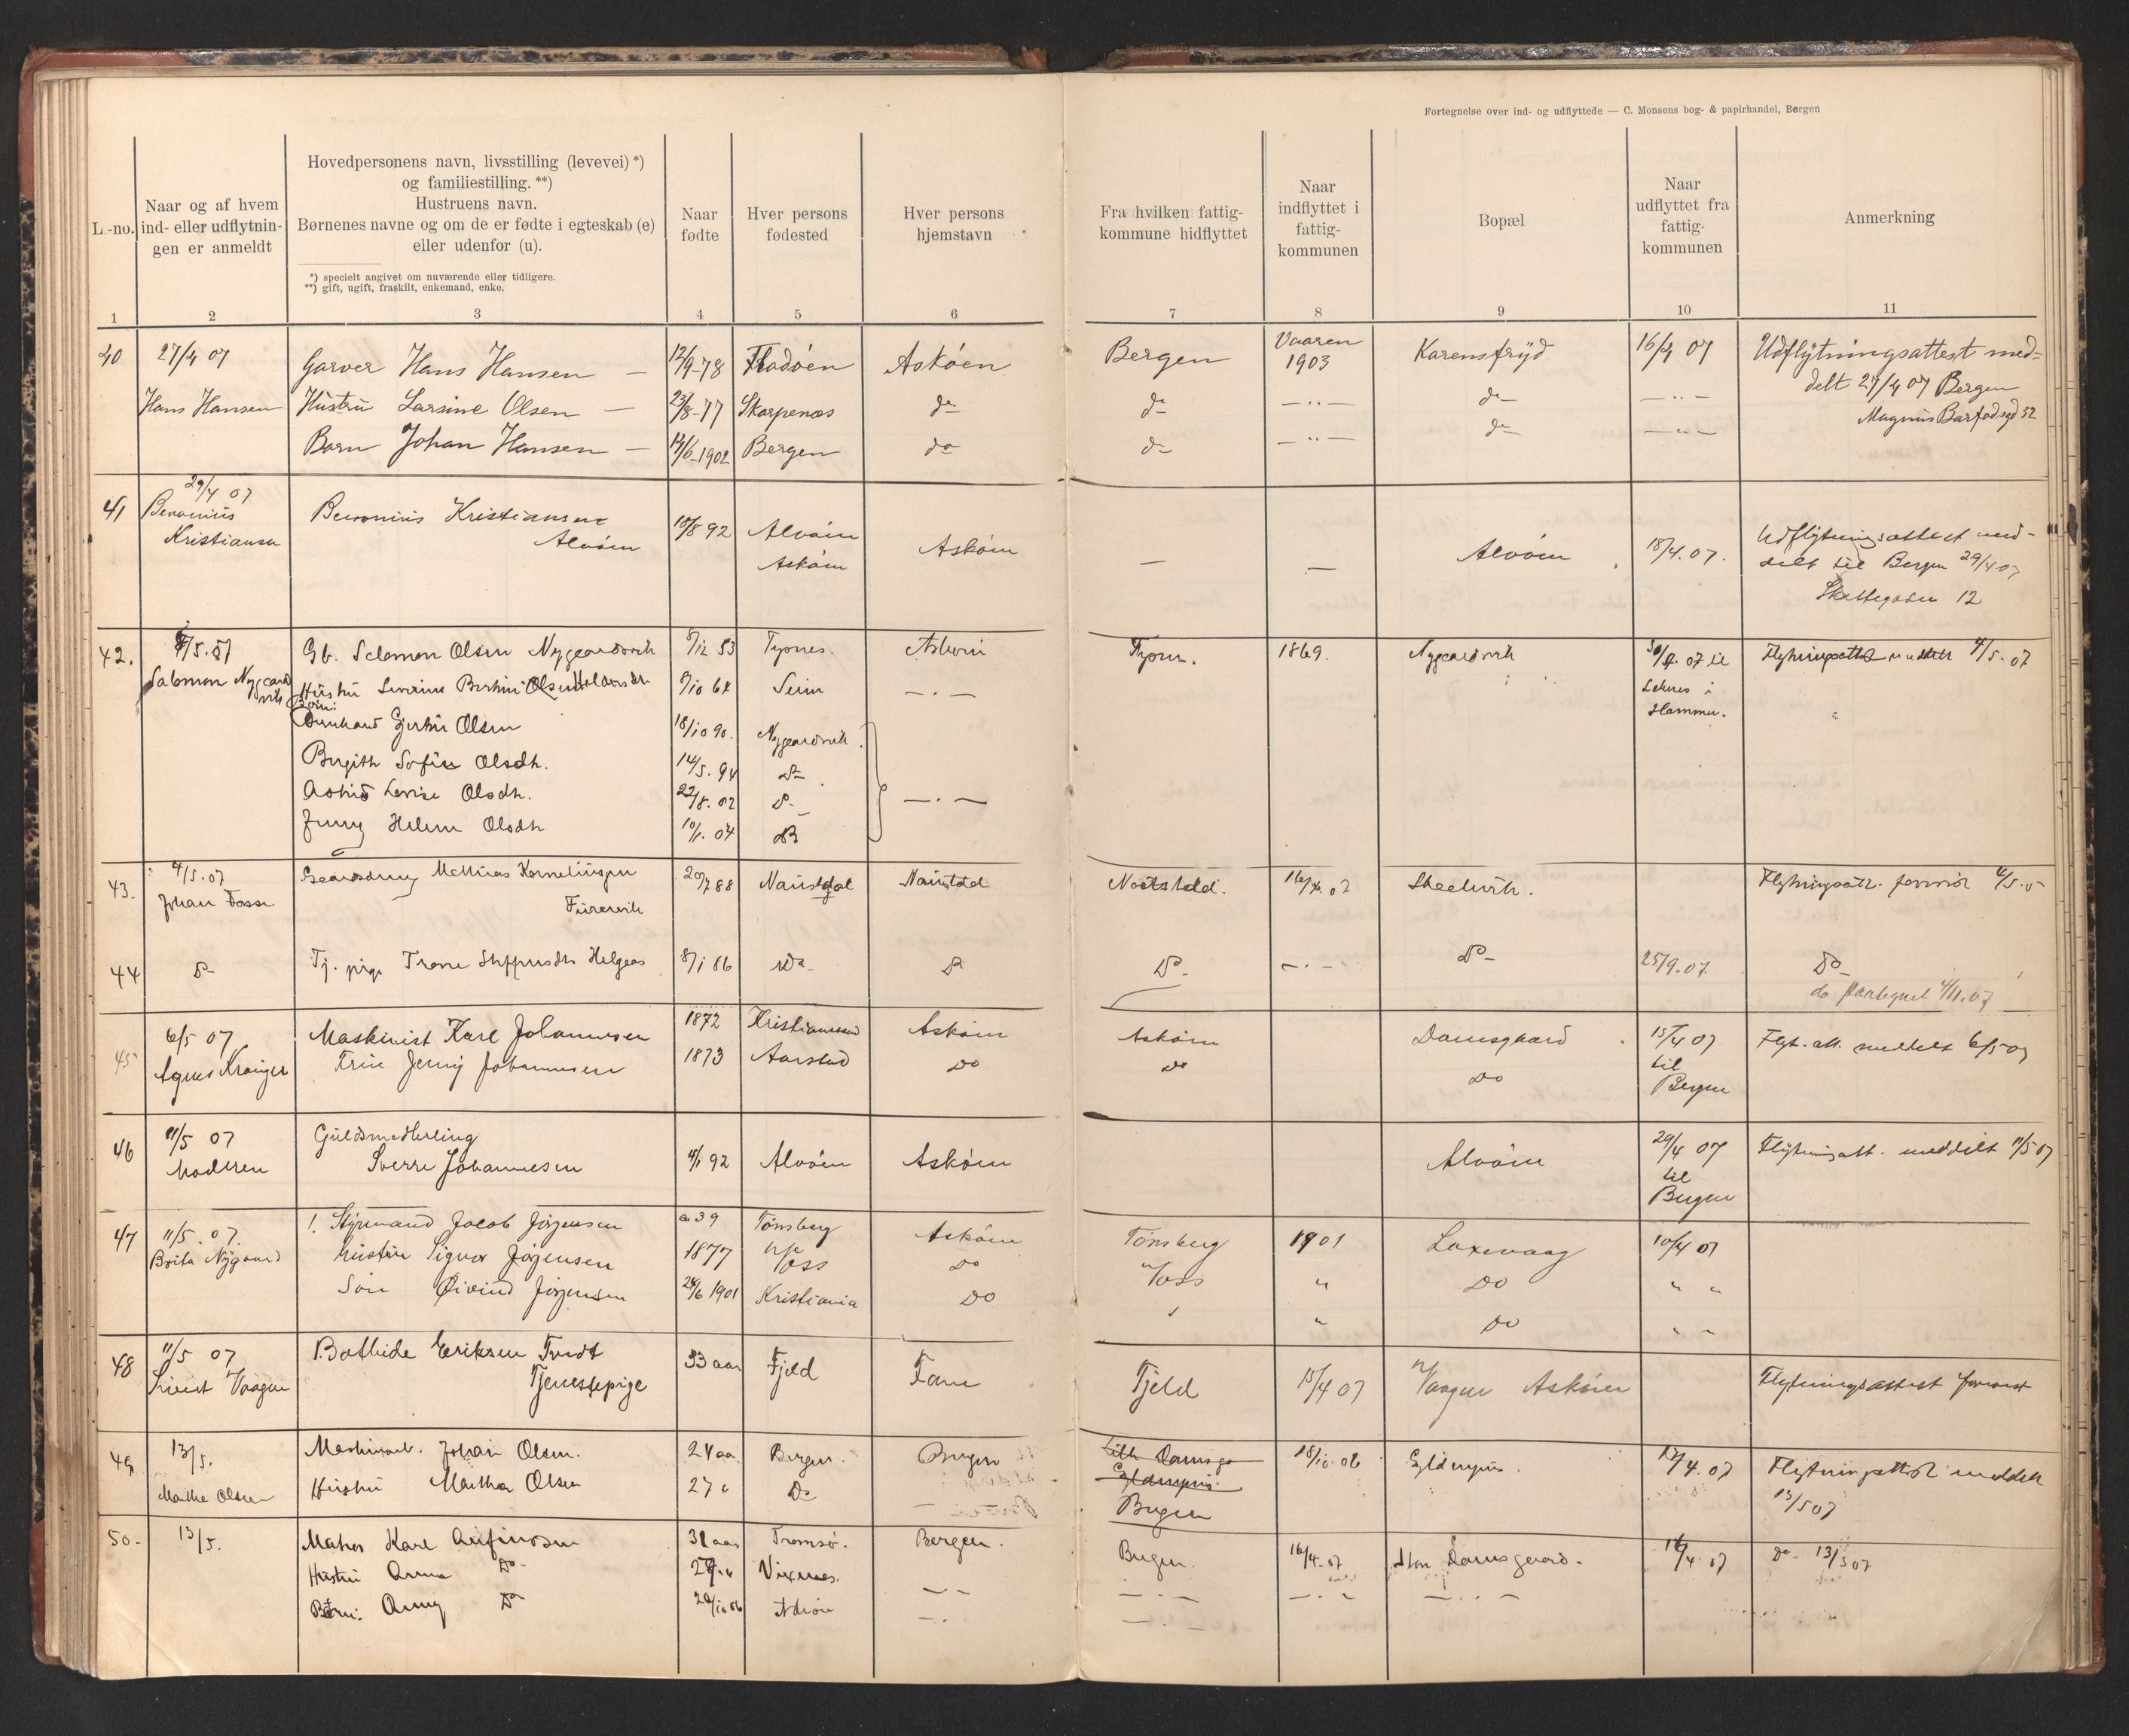 Fortegnelse over ind- og udflyttede — C. Monsens bog- & papirhandel, Bergen
L.-no.
Naar og af hvem
ind- eller udflytnin-
gen er anmeldt
Hovedpersonens navn, livsstilling (levevei) *)
og familiestilling. **)
Hustruens navn.
Børnenes navne og om de er fødte i egteskab (e)
eller udenfor (u).
*) specielt angivet om nuværende eller tidligere.
**) gift, ugift, fraskilt, enkemand, enke.
Naar
fødte
Hver persons
fødested
Hver persons
hjemstavn
Fra hvilken fattig-
kommune hidflyttet
Naar
indflyttet i
fattig-
kommunen
Bopæl
Naar
udflyttet fra
fattig-
kommunen
Anmerkning
1 2 3 4 5 6 7 8 9 10 11
40 27/4 07 Garver Hans Hansen — 12/9-78 Fladöen Asköen Bergen Vaaren 1903 Karensfryd 16/4 07 Udflytningsattest med-
delt 27/4 07 Bergen
Hans Hansen Hustru Larsine Olsen — 23/8-77 Skarpenæs do do —"— do —"— Magnus Barfodsgd 32
Barn Johan Hansen — 12/6-1902 Bergen do do —"— do —"—
41 29/4 07
Benonius
Kristiansen
Benonius Kristiansen
Alvöen
10/8 92 Alvöen
Asköen
Asköen — — Alvöen 18/4.07. Udflytningsattest med-
delt til Bergen 29/4 07
Skottegaden 12
42. 4/5.07 Gb. Salomon Olsen Nygaardsvik 8/12 53 Typnes. Asköen 1869. Nygaardsvik 30/4.07 til Flytningsattest meddelt 4/5.07
Salomon Nygaardsvik Hustru Severine 9/10 64 Seim —.— i
Hammer.
Børn:
Bernhard Gjertin Olsen 18/10 90. Nygaardsvik
Birgith Sofie Olsdtr. 14/5.94 Do
Astrid Lovise Olsdtr. 22/8.02 Do —.—
Jenny Helene Olsdtr 10/1.04 Do
43. 4/5.07 Mathias Korneliussen 20/7 88 Naustdal Naustdal Naustdal. 07 Flytningsatt. forevist 4/5.0
Johan Fosse
44 Do Tj. pige Helgaas 8/1 86 Do Do Do —.— Do 25/9.07 Do
4/11.07
45 6/5 07 Maskinist Karl Johannesen 1872 Kristianssand Asköen Asköen Damsgaard 15/4 07
til
Bergen
Flyt. att. meddelt 6/5 07
Agnes Kroniger Frue Jenny Johannesen 1873 Aarstad Do Do Do
46 11/5 07
Moderen
Guldsmedlerling
Sverre Johannesen
4/1 92 Alvöen Asköen Alvöen 29/4 07
til
Bergen
Flytningsatt. meddelt 11/5 07
47 11/5.07. Styrmand Jacob Jörgensen 39 Tönsberg Asköen Tönsberg 1901 Laxevaag 10/4 07
Brita Nygaard Hustru Signor Jörgensen 1877 Voss Do Voss " Do " "
Sön Öivind Jörgensen 24/6 1901 Kristiania Do " Do " "
48 11/5 07
Sivert Vaagen
Bothilde Eriksen Tvedt
Tjenestepige
33 aar Fjeld Fane Fjeld 15/4 07 Vaagen Asköen Flytningsattest forevist
49 13/5. Maskinarb. Johan Olsen. 24 aar Bergen. Bergen Lille Damsgo
Gyldenpris
Bergen
18/10.06 Gyldenpris. 12/4.07 Flytningsattest meddelt
13/5 07
Marthe Olsen Hustru Martha Olsen 27 " Do
50. 13/5. Maler Karl Anfinsen 31 aar Tromsö. Bergen. Bergen. 16/4.07 Store Damsgaard. 16/4 07 Do 13/5 07
Hustru Anna Do —.— —.— —.—
Börn: Anny Do 20/10 06 Asköen